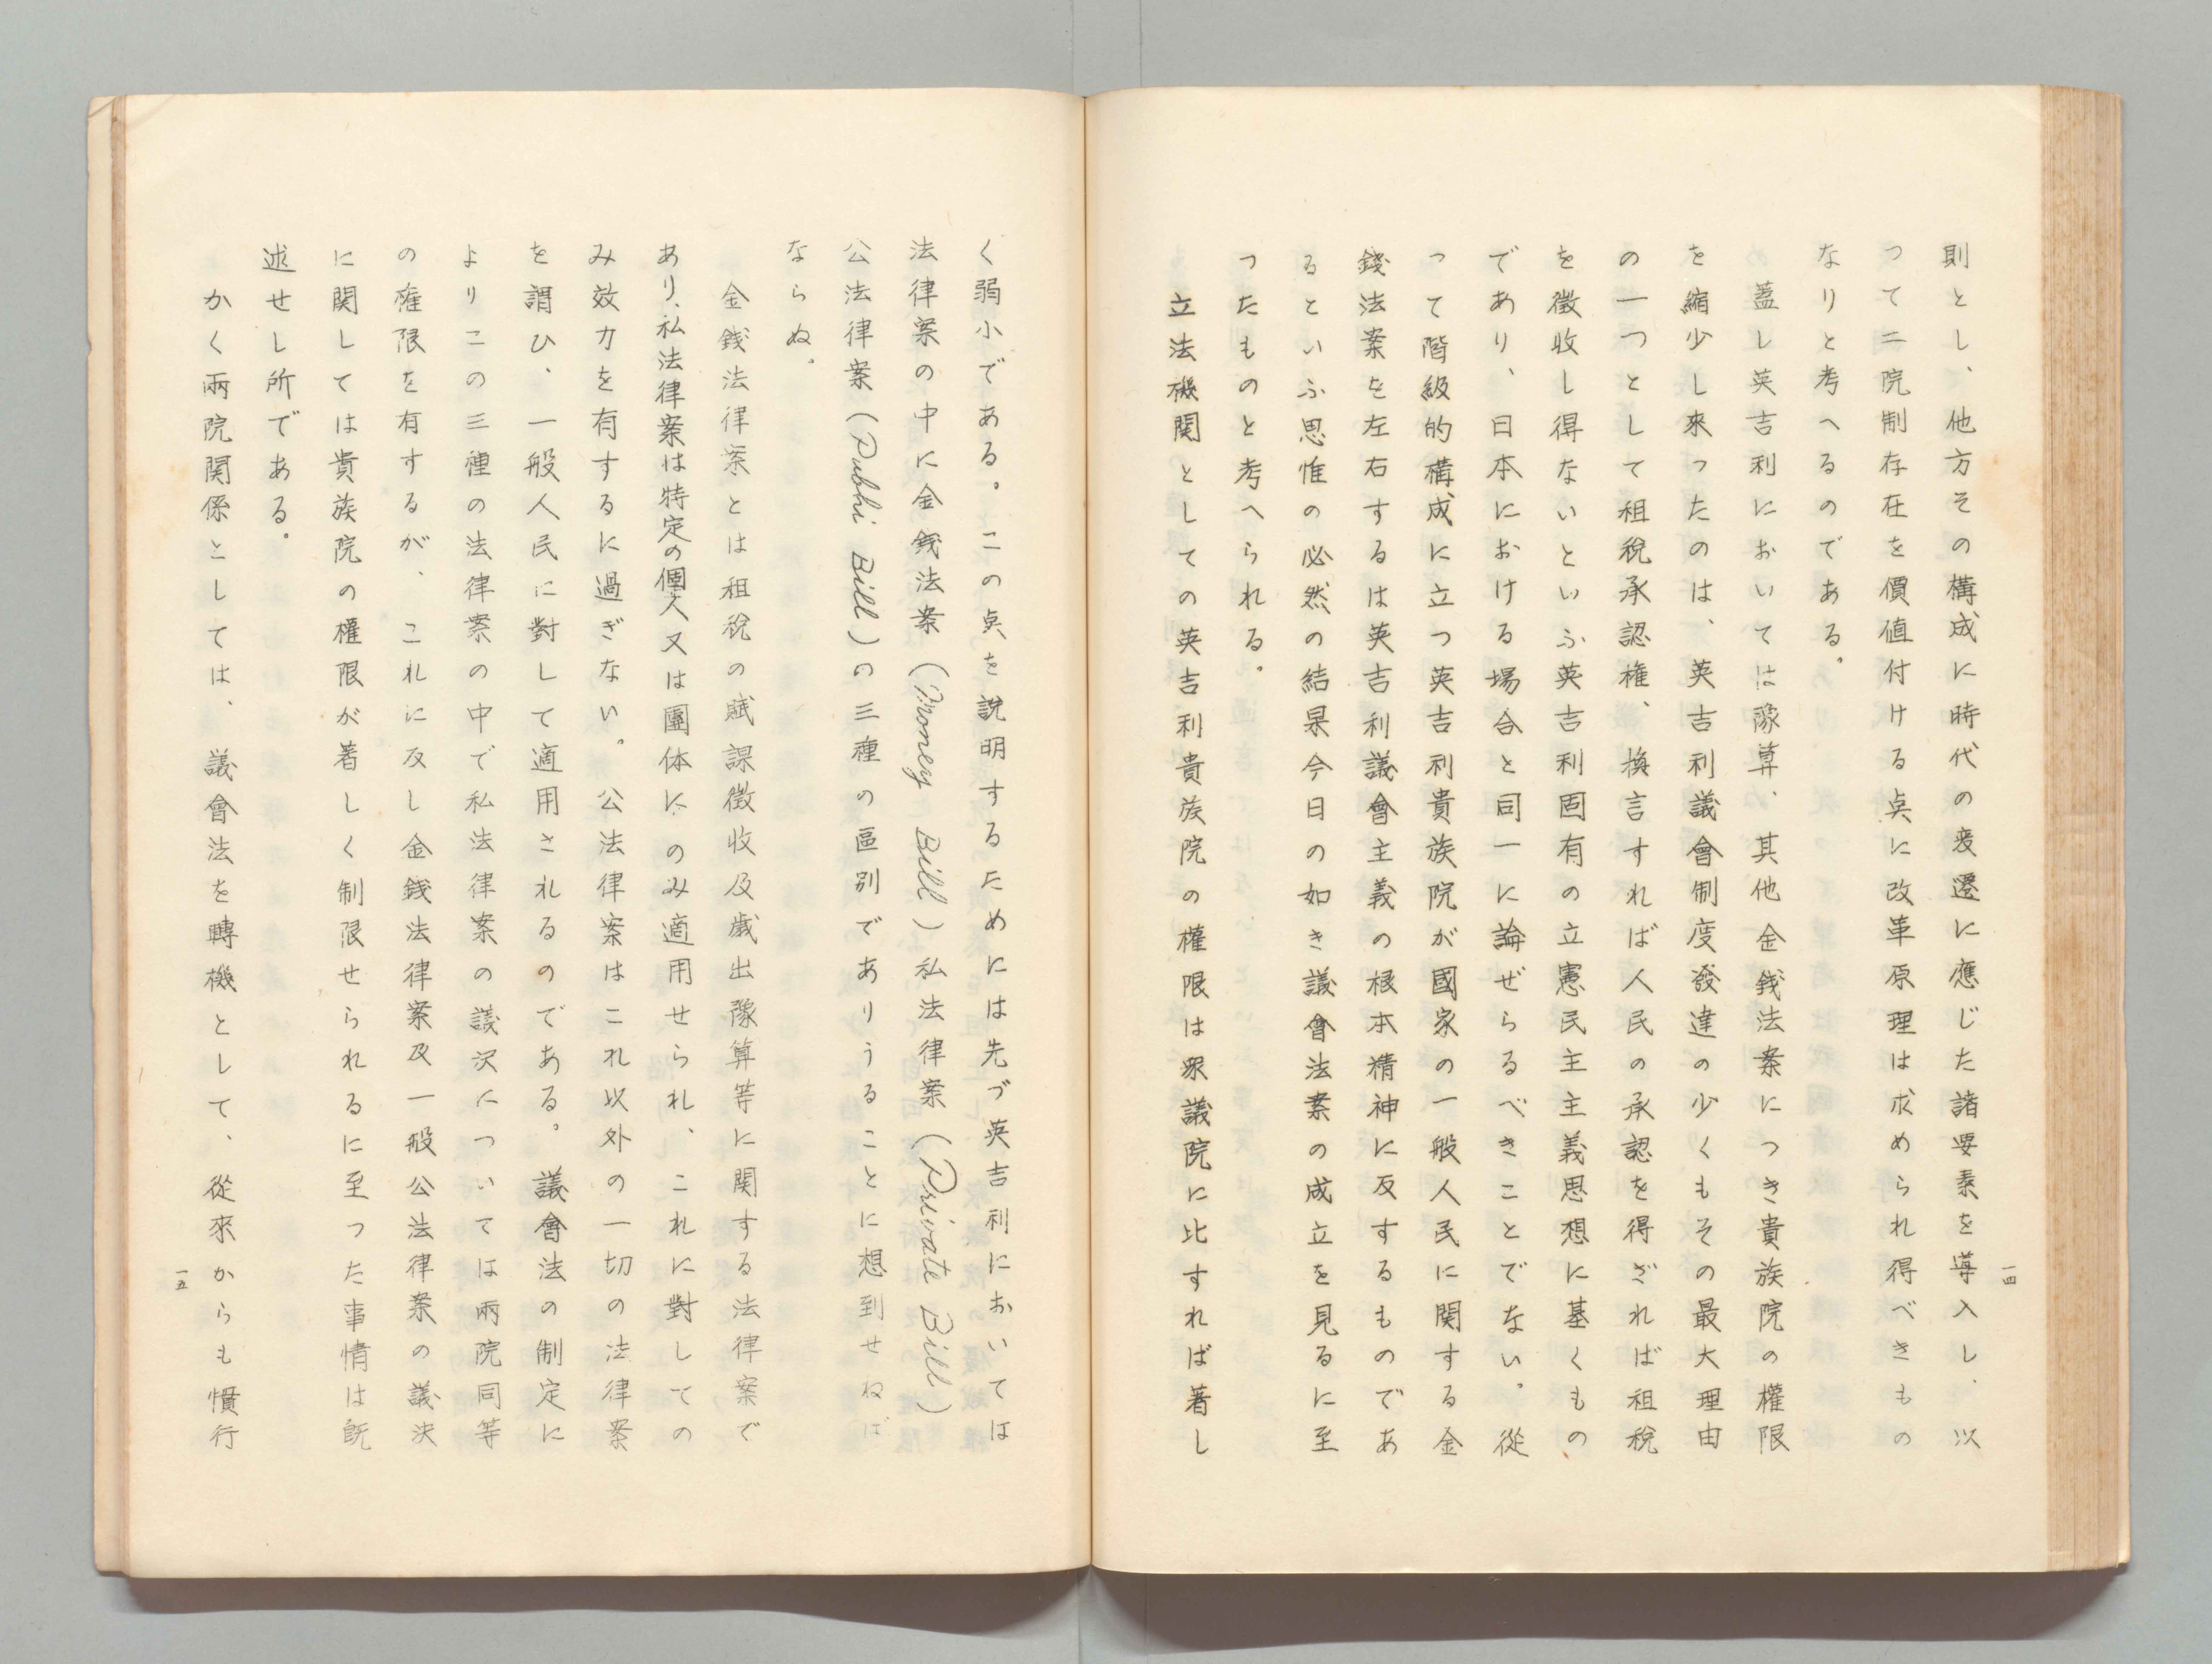 則とし、他方その構成に時代の変遷に應じた諸要素を導入し、以
つて二院制存在を價値付ける点に改革原理は求められ得べきもの
なりと考へるのである。
蓋し英吉利においては豫算、其他金銭法案につき貴族院の權限
を縮少し來つたのは、英吉利議會制度發達の少くもその最大理由
の一つとして租税承認権、換言すれば人民の承認を得ざれば租税
を徴收し得ないといふ英吉利固有の立憲民主主義思想に基くもの
であり、日本における場合と同一に論ぜらるべきことでない。從
つて階級的構成に立つ英吉利貴族院が國家の一般人民に関する金
錢法案を左右するは英吉利議會主義の根本精神に反するものであ
るといふ思惟の必然の結果今日の如き議會法案の成立を見るに至
つたものと考へられる。
立法機関としての英吉利貴族院の權限は衆議院に比すれば著し
一四
く弱小である。この点を説明するためには先づ英吉利においては
法律案の中に金銭法案（Money Bill）私法律案（Private Bill）
公法律案（Publi Bill）の三種の區別でありうることに想到せねば
ならぬ。
金銭法律案とは租税の賦課徴收及歳出豫算等に関する法律案で
あり、私法律案は特定の個人又は團体にのみ適用せられ、これに對しての
み效力を有するに過ぎない。公法律案はこれ以外の一切の法律案
を謂ひ、一般人民に對して適用されるのである。議會法の制定に
よりこの三種の法律案の中で私法律案の議決については兩院同等
の権限を有するが、これに反し金銭法律案及一般公法律案の議決
に関しては貴族院の權限が著しく制限せられるに至つた事情は既
述せし所である。
かく兩院関係としては、議會法を轉機として、從來からも慣行
一五